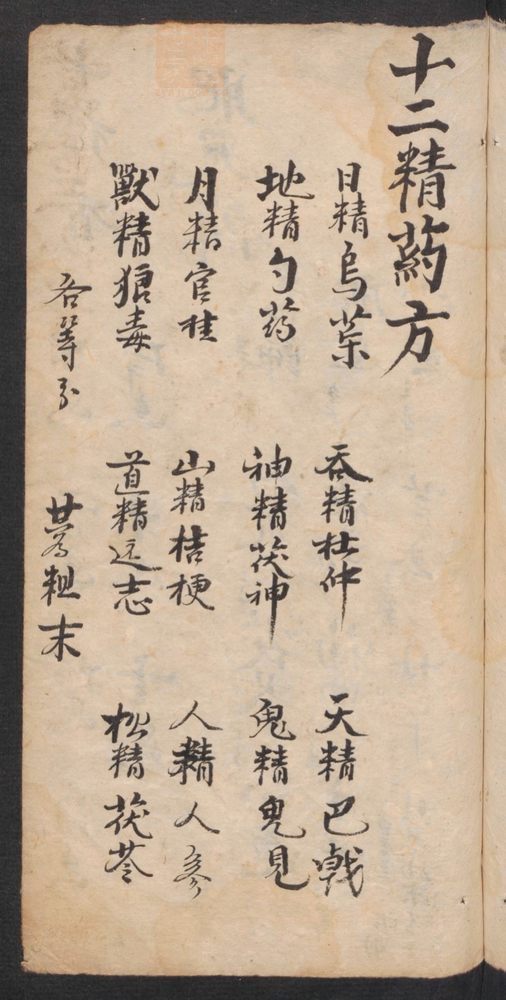 十二精药方
日精烏葉 吞精杜仲 天精巴戟
地精勺药 神精茯神 鬼精鬼見
月精官桂 山精桔梗 人精人参
獸精狼毒 道精远志 松精茯苓
各等分 共为粗末